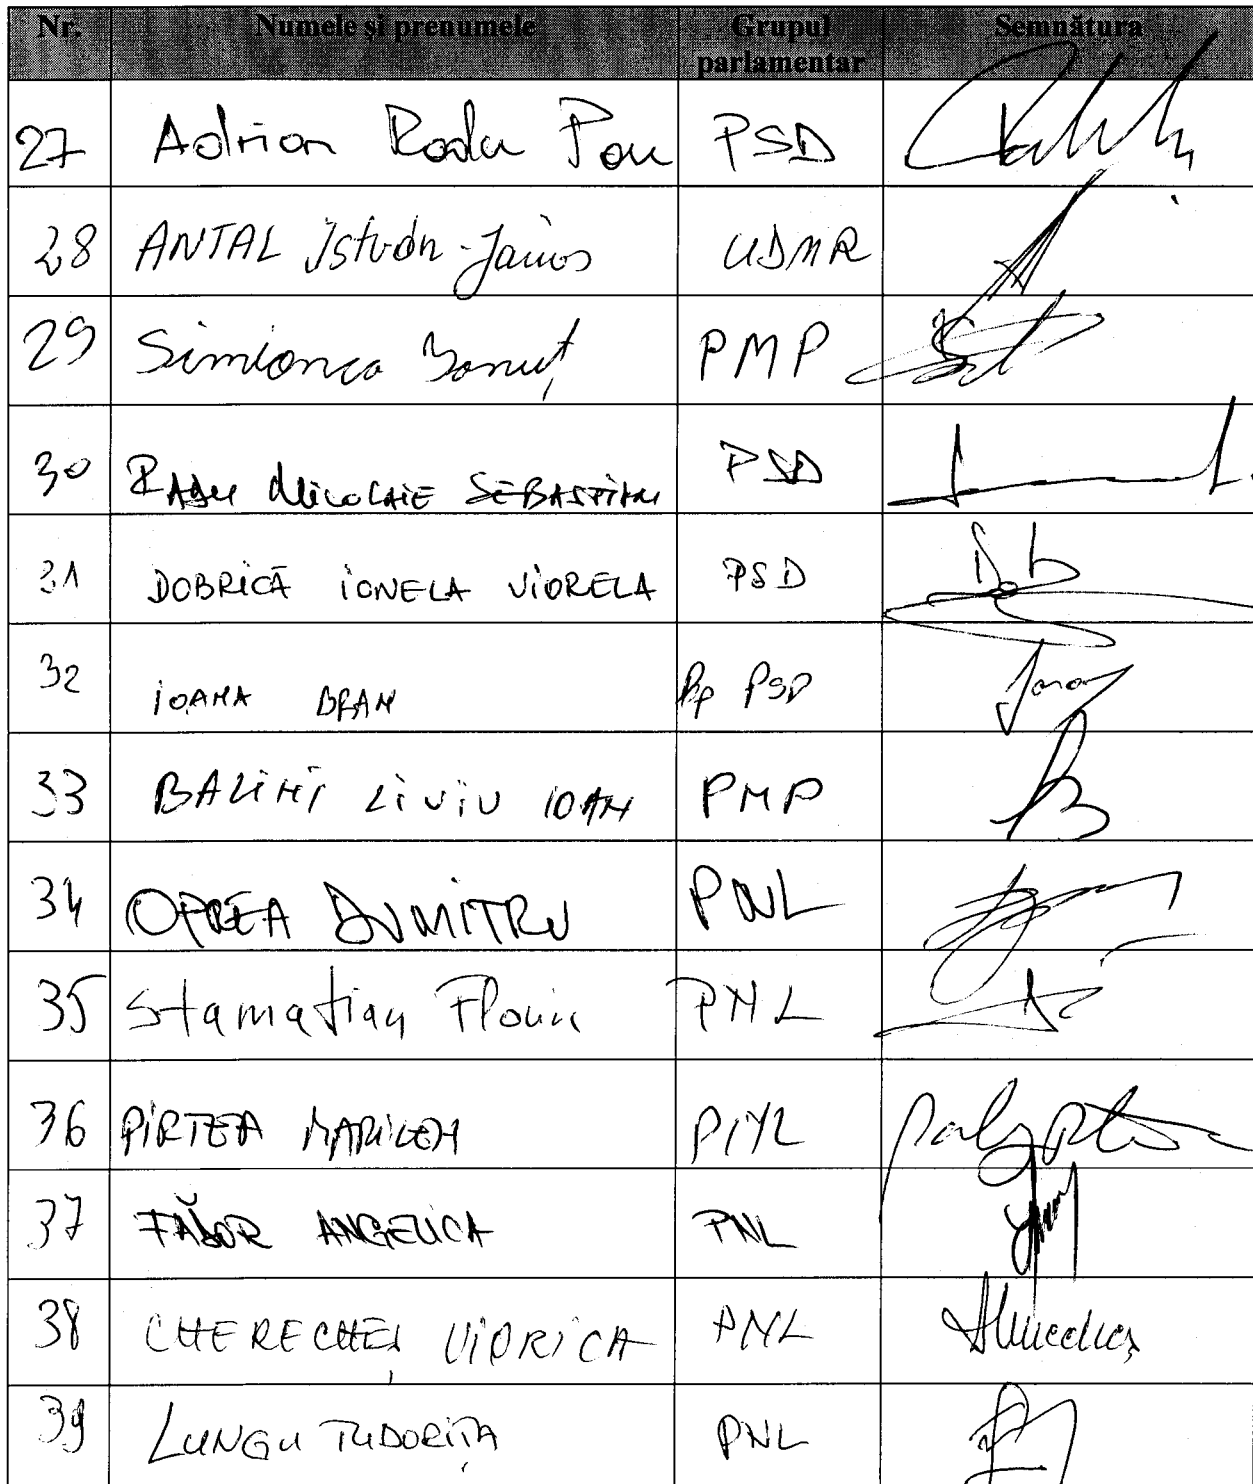 Nr. Numele și prenumele Grupul parlamentar Semnătura
27 Adrian Radu Pau PSD
28 ANTAL István-János UDMR
29 Simionca Ionuț PMP
30 RADU NICOLAIE SEBASTIAN PSD
31 DOBRICĂ IONELA VIORELA PSD
32 IOANA BRAN PSD
33 BALINT LIVIU IOAN PMP
34 OPREA DUMITRU PNL
35 Stamatian Florin PNL
36 PÎRTEA MARILEN PNL
37 FĂDOR ANGELICA PNL
38 CHERECHEȘ VIORICA PNL
39 LUNGU TUDORIȚA PNL